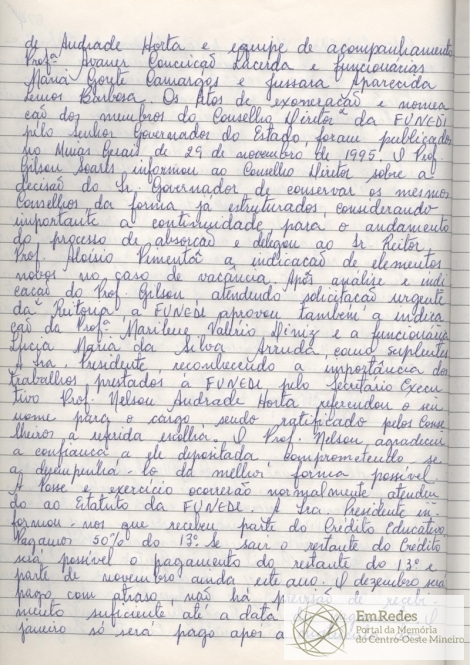 de Andrade Horta e equipe de acompanhamento
Profª Ivaner Conceição Lacerda e funcionárias
Maria Gorete Camargos e Jussara Aparecida
Lemos Barbosa. Os Atos de exoneração e nomea
ção dos membros do Conselho Diretor da FUNEDI
pelo Senhor Governador do Estado, foram publicados
no Minas Gerais de 29 de novembro de 1995. O Prof.
Gilson Soares informou ao Conselho Diretor sobre a
decisão do Sr. Governador de conservar os mesmos
Conselhos da forma já estruturados, considerando
importante a continuidade para o andamento
do processo de absorção e delegou ao Sr. Reitor,
Prof. Aloísio Pimenta a indicação de elementos
novos no caso de vacância. Após análise e indi
cação do Prof. Gilson, atendendo solicitação urgente
da Reitoria a FUNEDI aprovou também a indica
ção da Profª Marilene Valério Diniz e a funcionária
Lúcia Maria da Silva Arruda, como suplentes
A Sra Presidente, reconhecendo a importância dos
trabalhos prestados à FUNEDI, pelo Secretário Execu
tivo Prof. Nelson Andrade Horta referendou o seu
nome para o cargo sendo ratificado pelos Conse
lheiros a referida escolha. O Prof. Nelson, agradeceu
a confiança a ele depositada comprometendo se
a desempenhá-lo da melhor forma possível.
A Posse e exercício ocorrerão normalmente, atenden
do ao Estatuto da FUNEDI. A Sra. Presidente in-
formou-nos que recebeu parte do Crédito Educativo.
Pagamos 50% do 13º. Se sair o restante do Crédito
será possível o pagamento do restante do 13º e
parte de novembro ainda este ano. O dezembro será
pago com atraso, não há previsão de recebi-
mento suficiente até a data
janeiro só será pago após a
EmRedes
Portal da Memória
do Centro-Oeste Mineiro